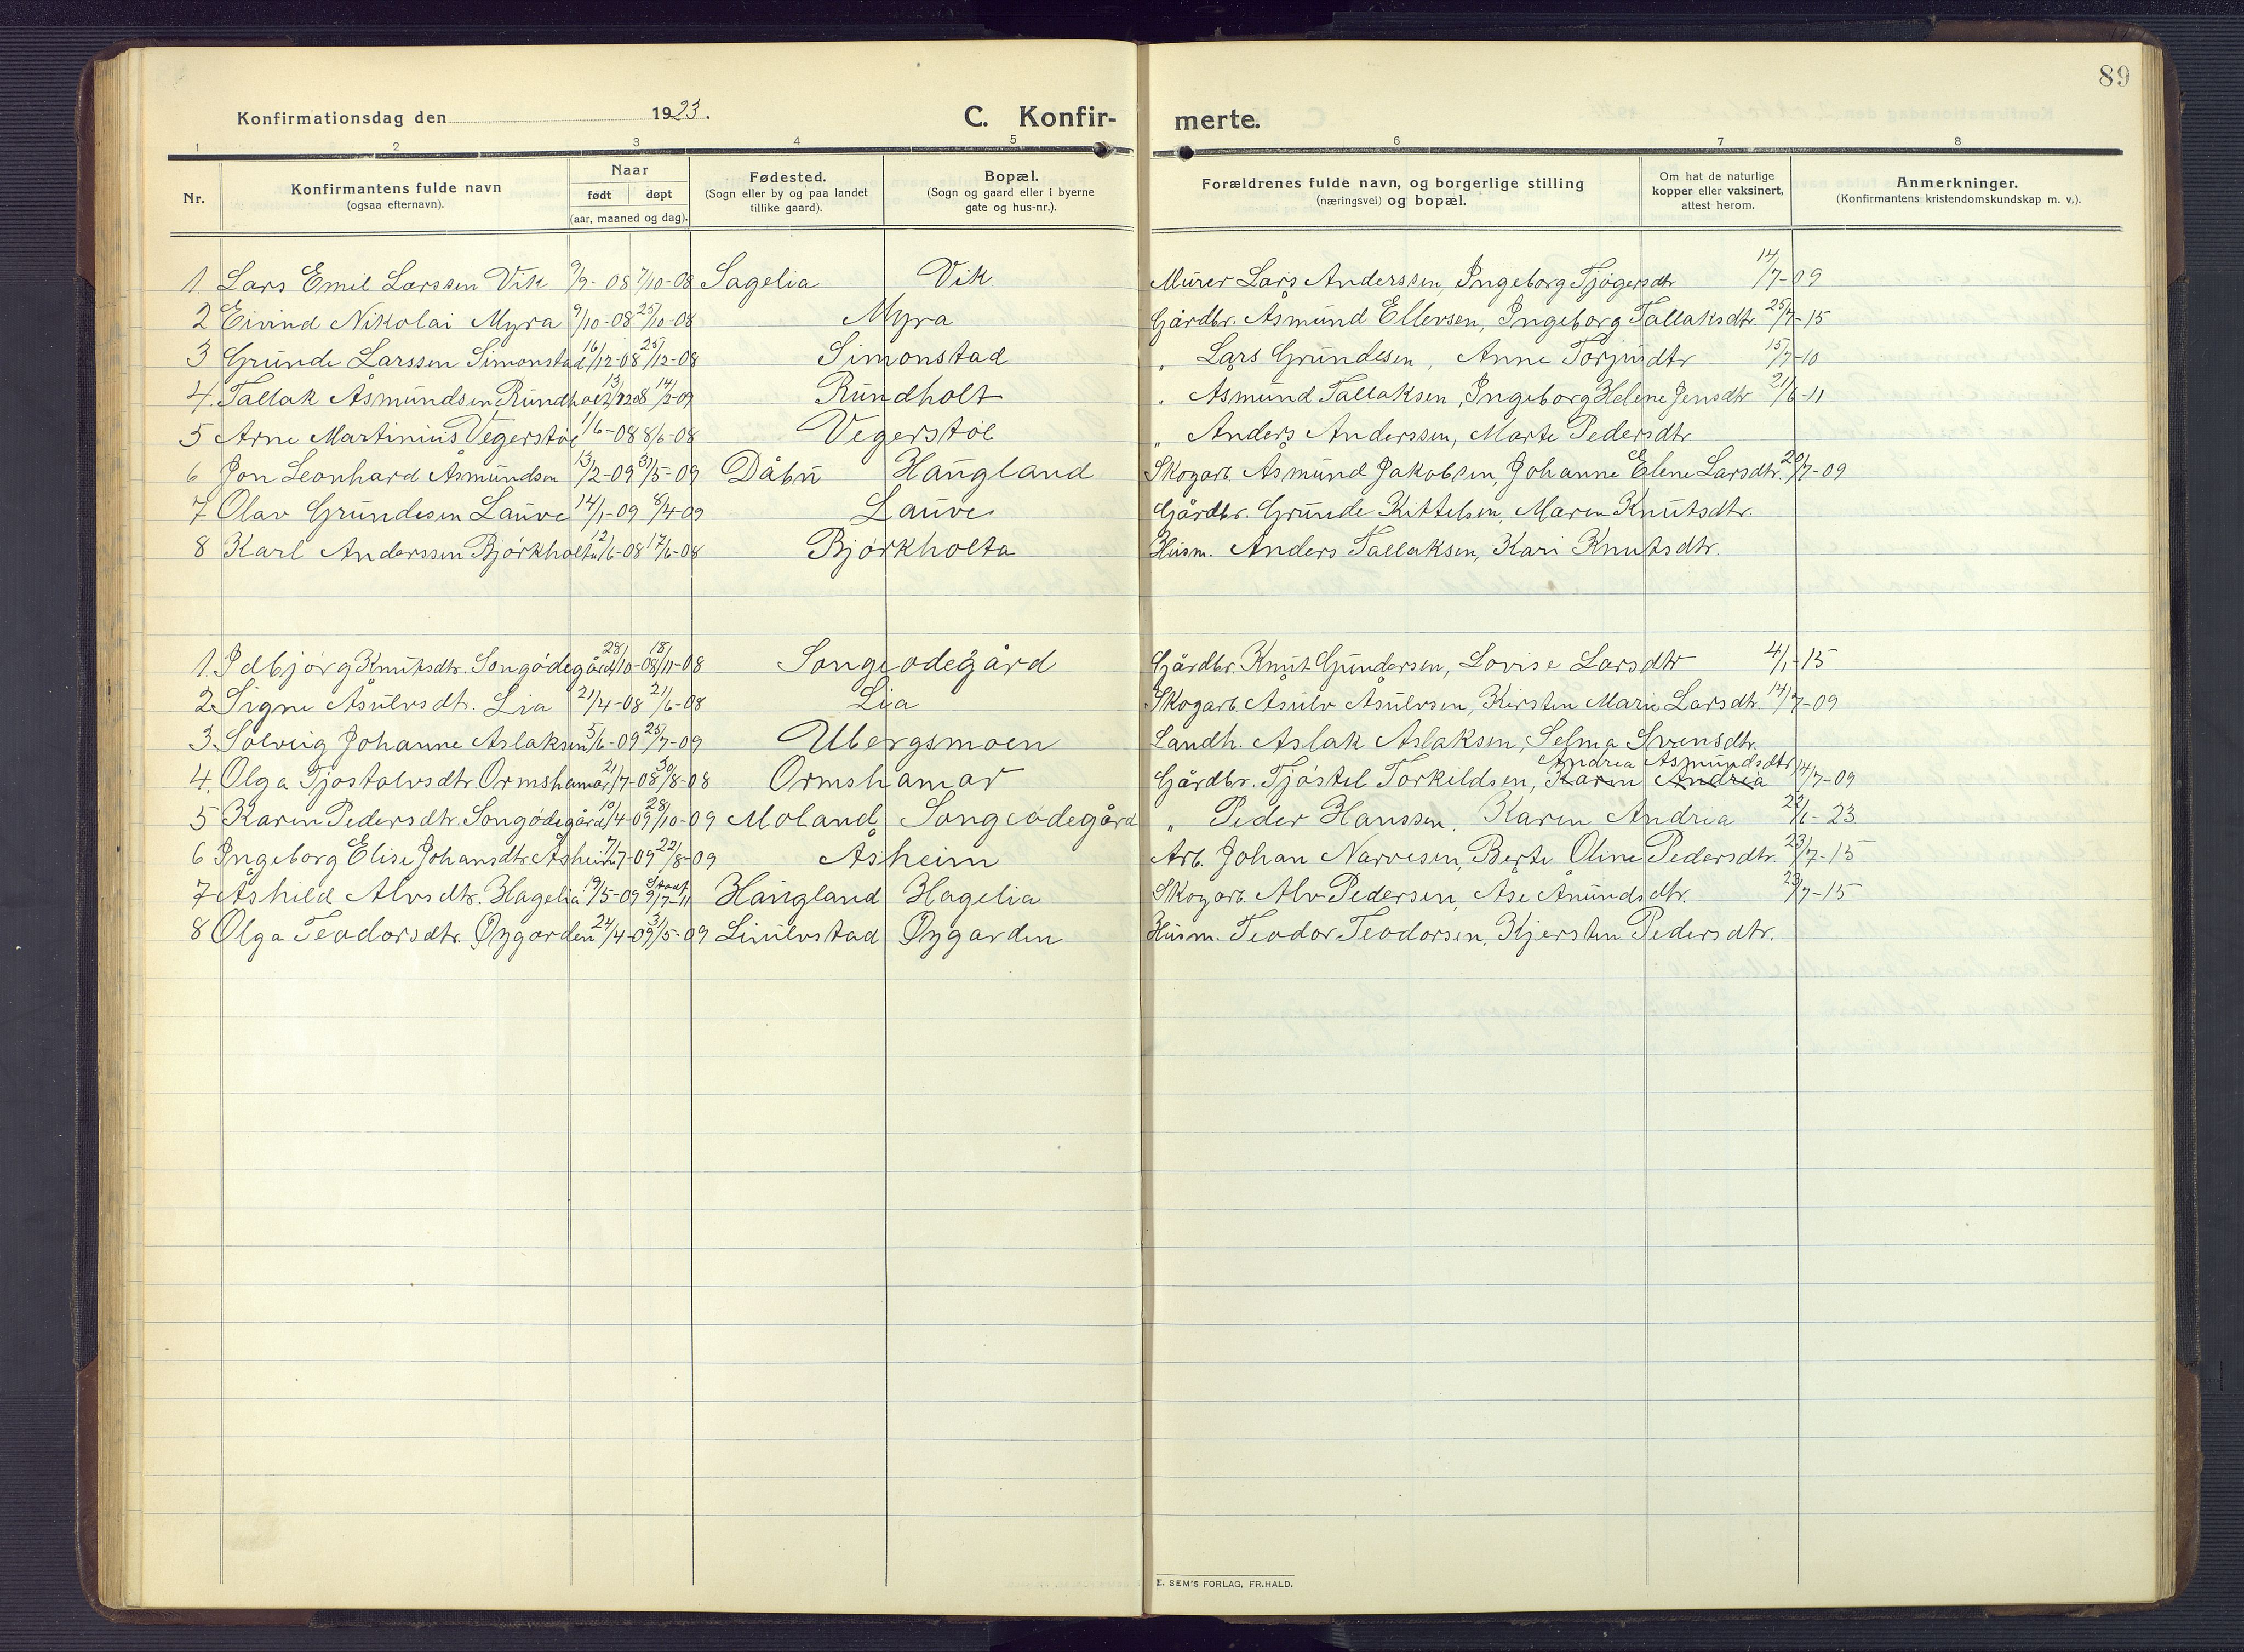 89
Konfirmationsdag den 1923. C. Konfir- merte.
1 2 3 4 5 6 7 8
Nr. Konfirmantens fulde navn (ogsaa efternavn). Naar født døpt (aar, maaned og dag). Fødested. (Sogn eller by og paa landet tillike gaard). Bopæl. (Sogn og gaard eller i byerne gate og hus-nr.). Forældrenes fulde navn, og borgerlige stilling (næringsvei) og bopæl. Om hat de naturlige kopper eller vaksinert, attest herom. Anmerkninger. (Konfirmantens kristendomskundskap m. v.).
1. Lars Emil Larssen Vik 9/9-08 7/10-08 Sagelia Vik Murer Lars Anderssen, Ingeborg Tjøgersdtr 14/7-09
2 Eivind Nikolai Myra 9/10-08 25/10-08 Myra Gårdbr. Åsmund Ellevsen, Ingeborg Tallaksdtr. 25/7-15
3 Grunde Larssen Simonstad 16/12-08 25/12-08 Simonstad " Lars Grundesen, Anne Torjusdtr 15/7-10
4. Tallak Åsmundsen Rundholt 13/12 08 14/2-09 Rundholt " Åsmund Tallaksen, Ingeborg Helene Jensdtr 21/6-11
5 Arne Martinius Vegerstøl 1/6-08 8/6-08 Vegerstøl " Anders Anderssen, Marte Pedersdtr
6 Jon Leonhard Åsmundsen 13/2-09 31/5-09 Dåbu Haugland Skogarb. Åsmund Jakobsen, Johanne Elene Larsdtr. 20/7-09
7 Olav Grundesen Lauve 14/1-09 8/4-09 Lauve Gårdbr. Grunde Kittelsen, Maren Knutsdtr.
8 Karl Anderssen Bjørkholta 12/6-08 17/6-08 Bjørkholta Husm. Anders Tallaksen, Kari Knutsdtr.
1. Idbjørg Knutsdtr. Songødegård 28/10-08 18/11-08 Songeødegård Gårdbr. Knut Gundersen, Lovise Larsdtr 4/1-15
2 Signe Åsulvsdt. Lia 21/4-08 21/6-08 Lia Skogarb. Åsulv Åsulvsen, Kirsten Marie Larsdtr. 14/7-09
3. Solveig Johanne Aslaksen 5/6-09 25/7-09 Ubergsmoen Landh. Aslak Aslaksen, Selma Svensdtr.
4. Olga Tjøstolvsdtr. Ormshamar 21/7-08 30/8-08 Ormshamar Gårdbr. Tjøstel Torkildsen, Karen Andrea Andrea Asmundsdtr 14/7-09
5 Karen Pedersdtr. Songødegård 10/4-09 28/10-09 Moland Songeødegård " Peder Hanssen, Karen Andrea 22/1-23
6 Ingeborg Elise Johansdtr. Åsheim 7/7-09 22/8-09 Åsheim Arb. Johan Narvesen, Berte Oline Pedersdtr. 23/7-15
7 Åshild Alvsdtr. Hagelia 19/5-09 9/7-11 Haugland Hagelia Skogarb. Alv Pedersen, Åse Ånundsdtr. 23/7-15
8 Olga Teodorsdtr. Øygarden 24/4-09 31/5-09 Liuulvstad Øygarden Husm. Teodor Teodorsen, Kjersten Pedersdtr.
E. SEM'S FORLAG, FR.HALD.